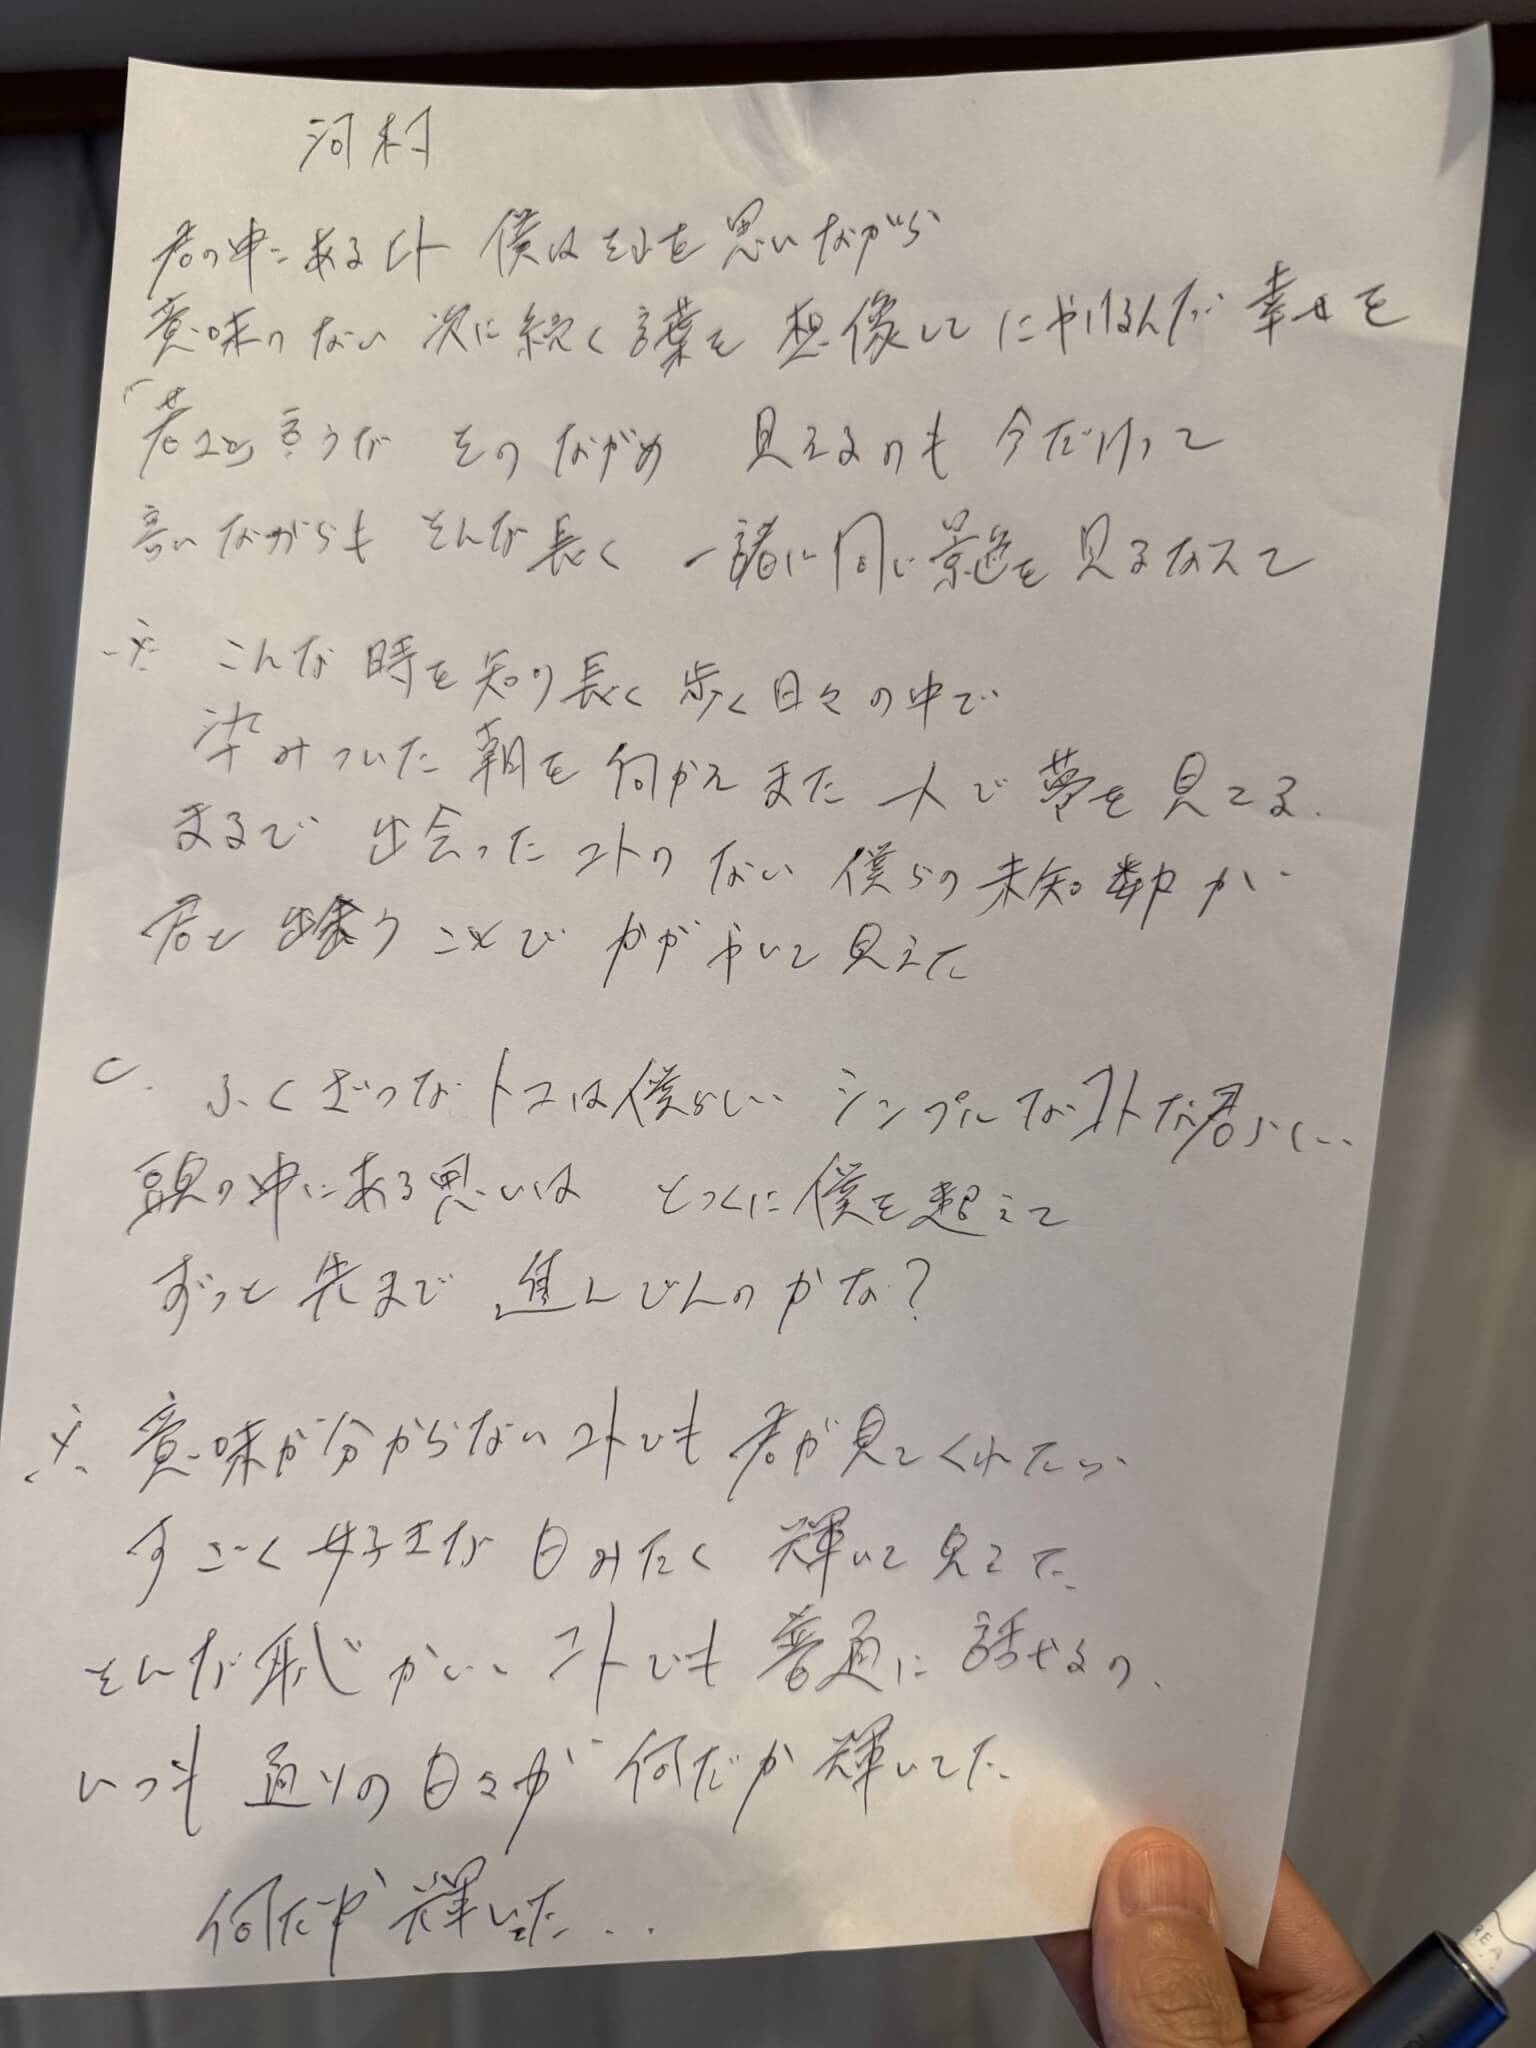 河村
君の中にあるコト 僕はそれを思いながら
意味のない 次に続く言葉を 想像して にやけるんだ 幸せを
「君と 言うが そのながめ 見えるのも 今だけって
言いながらも そんな長く 一諸に同じ景色を見るなんて
※ こんな時を知り長く歩く日々の中で
染みついた朝を向かえまた 一人で夢を見てる.
まるで 出会ったコトのない 僕らの未知数が
君と 出会うことで かがやいて見えた
C. ふくざつなトコは僕らしい シンプルなコトが君らしい
頭の中にある思いは とっくに僕を超えて
ずっと先まで 進んでんのかな?
※ 意味が分からないコトでも 君が見てくれたら
すごく好きな 日みたく 輝いて見えた
そんな恥ずかしいコトでも普通に話せるの.
いつも通りの日々が 何だか輝いてた
何だか 輝いてた...